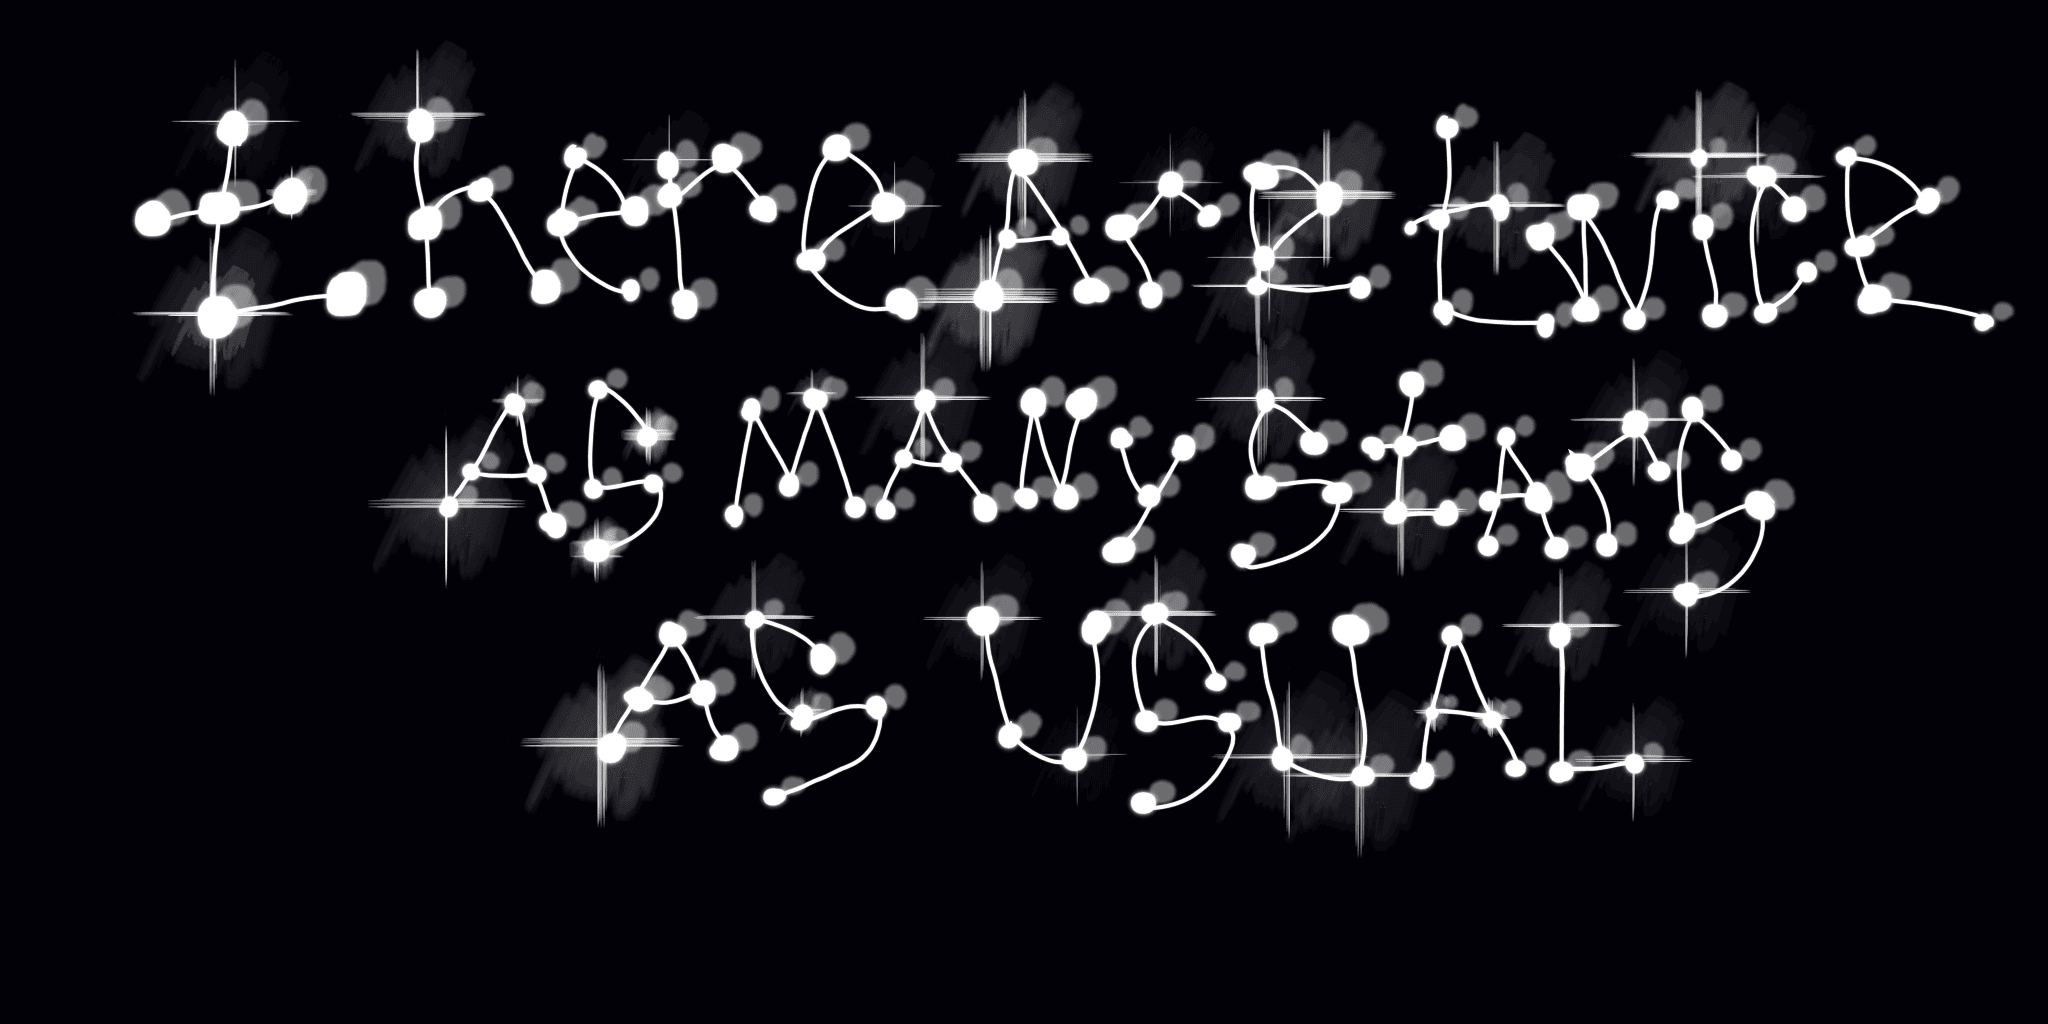 there Are twice
AS MANy StArS
AS USUAL